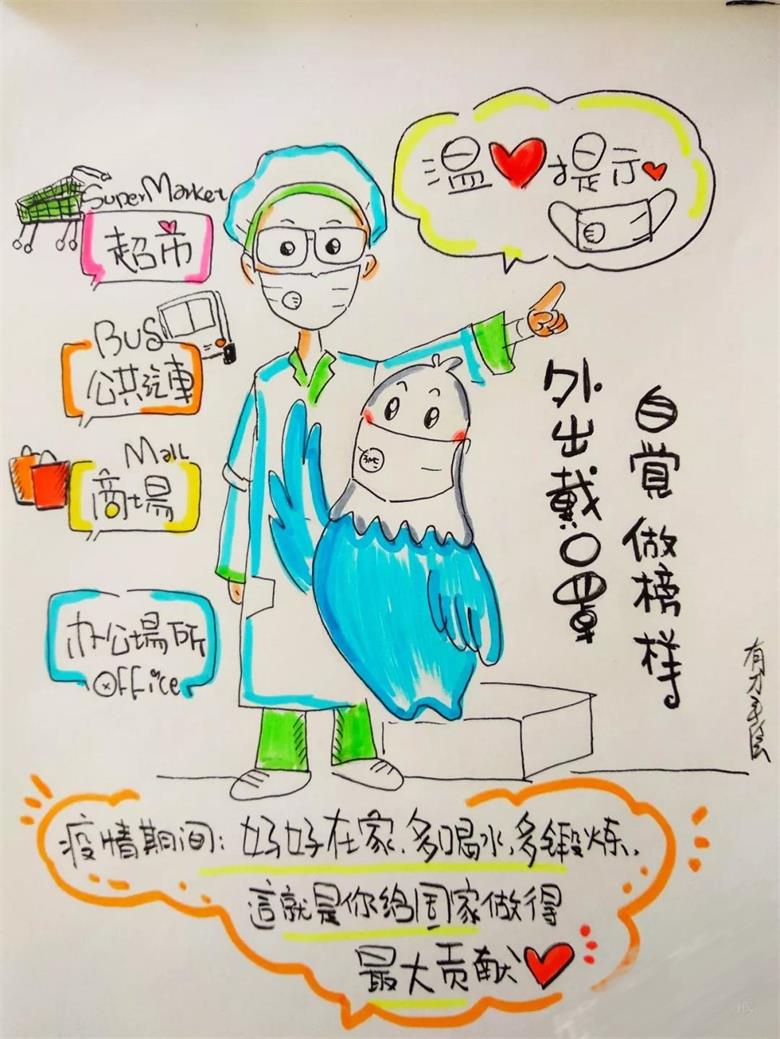 温❤提示❤
Super Market
超市
Bus
公共汽車
Mall
商場
办公場所
Office
外出戴口罩
自覺做榜样
有才手绘
疫情期间：好好在家、多喝水、多鍛炼，
這就是你给国家做得
最大贡献❤